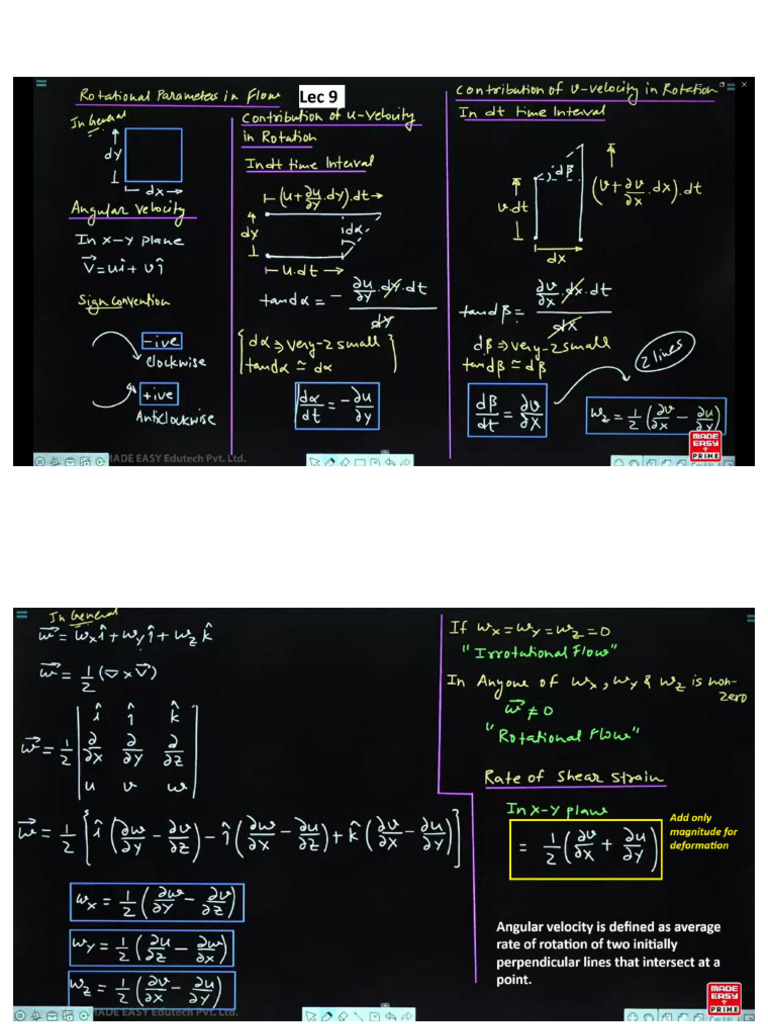 Rotational Parameters in Flow
Lec 9
In General
dy
dx
Angular Velocity
In x-y plane
V⃗ = uî + vĵ
Sign Convention
-ive
Clockwise
+ive
Anticlockwise
Contribution of u-velocity
in Rotation
In dt time Interval
(u + ∂u/∂y . dy).dt
dy
dα
u.dt
tan dα = - (∂u/∂y . dy . dt) / dy
dα ⇒ very-2 small
tan dα ≃ dα
dα/dt = -∂u/∂y
Contribution of v-velocity in Rotation
In dt time Interval
dβ
v.dt
(v + ∂v/∂x . dx).dt
dx
tan dβ = (∂v/∂x . dx . dt) / dx
dβ ⇒ very-2 small
tan dβ ≃ dβ
2 lines
dβ/dt = ∂v/∂x
ωz = 1/2 (∂v/∂x - ∂u/∂y)
MADE EASY Edutech Pvt. Ltd.
MADE
EASY
PRIME
In General
w⃗ = wx î + wy ĵ + wz k̂
w⃗ = 1/2 (∇ × V⃗)
w⃗ = 1/2 | î ĵ k̂ |
| ∂/∂x ∂/∂y ∂/∂z |
| u v w |
w⃗ = 1/2 [ î (∂w/∂y - ∂v/∂z) - ĵ (∂w/∂x - ∂u/∂z) + k̂ (∂v/∂x - ∂u/∂y) ]
wx = 1/2 (∂w/∂y - ∂v/∂z)
wy = 1/2 (∂u/∂z - ∂w/∂x)
wz = 1/2 (∂v/∂x - ∂u/∂y)
If wx = wy = wz = 0
"Irrotational Flow"
In Anyone of wx, wy & wz is non-
zero
w⃗ ≠ 0
"Rotational Flow"
Rate of Shear Strain
In x-y plane
= 1/2 (∂v/∂x + ∂u/∂y)
Add only
magnitude for
deformation
Angular velocity is defined as average
rate of rotation of two initially
perpendicular lines that intersect at a
point.
MADE EASY Edutech Pvt. Ltd.
MADE
EASY
PRIME